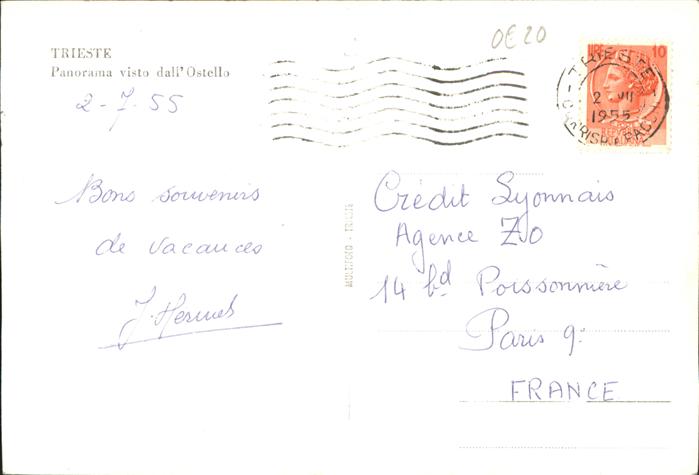 TRIESTE
Panorama visto dall'Ostello
2-7.55
Bons souvenirs
de vacances
MULTIFOTO - TRIESTE
0€20
LIRE 10
TRIESTE
2 VII
1955
Crédit Lyonnais
Agence ZO
14 bd Poissonnière
Paris 9e
FRANCE